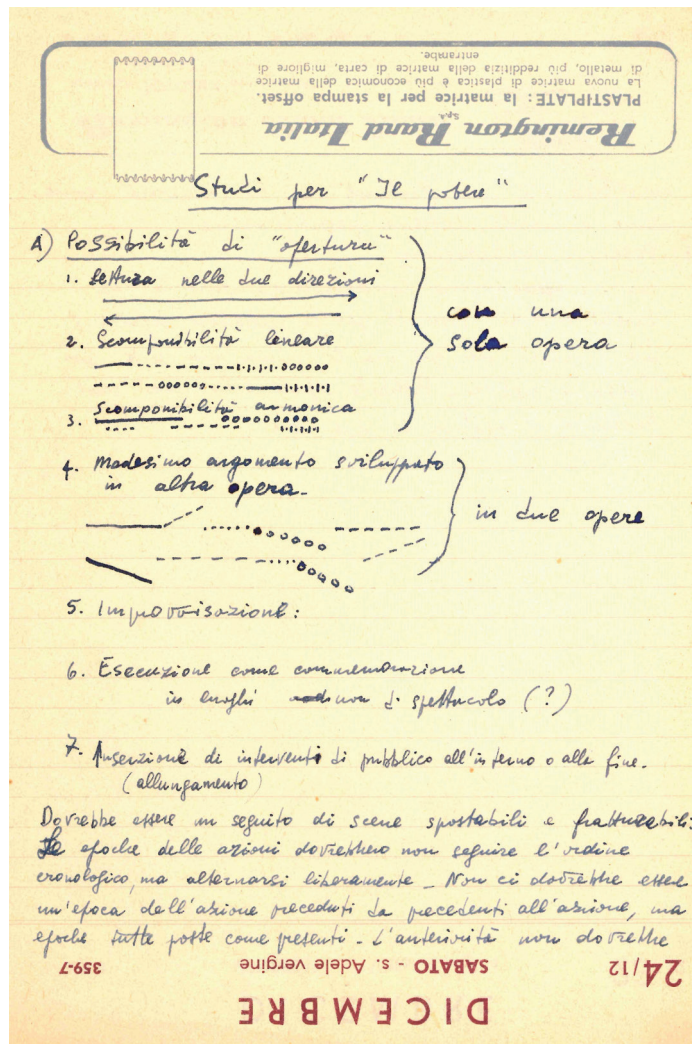 Remington Rand Italia S.p.A.
PLASTIPLATE: la matrice per la stampa offset.
La nuova matrice di plastica è più economica della matrice
di metallo, più redditizia della matrice di carta, migliore di
entrambe.
Studi per "Il potere"
A) Possibilità di "apertura"
1. Lettura nelle due direzioni
2. Scomponibilità lineare
con una
sola opera
3. Scomponibilità armonica
4. Medesimo argomento sviluppato
in altra opera.
in due opere
5. Improvvisazione:
6. Esecuzione come commemorazione
in luoghi non di spettacolo (?)
7. Inserzione di interventi di pubblico all'interno o alla fine.
(allungamento)
Dovrebbe essere un seguito di scene spostabili e fratturabili.
Le epoche delle azioni dovrebbero non seguire l'ordine
cronologico, ma alternarsi liberamente - Non ci dovrebbe essere
un'epoca dell'azione preceduti da precedenti all'azione, ma
epoche tutte poste come presenti - L'anteriorità non dovrebbe
24/12 SABATO - s. Adele vergine 359-7
DICEMBRE